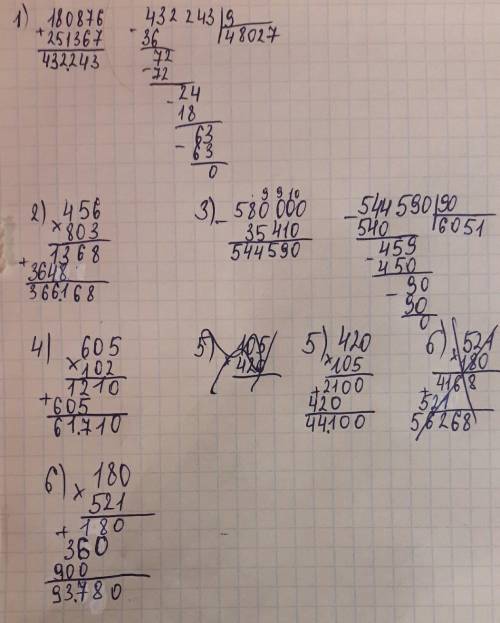 1) 180876
+ 251367
432.243
- 432243 | 9
36 | 48027
72
- 72
- 24
18
63
- 63
0
2) 456
× 803
1368
+ 3648
366.168
3) - 580000
9 9 10
35410
544590
- 544590 | 90
540 | 6051
- 459
450
- 90
90
0
4) 605
× 102
1210
+ 605
61.710
5) × 105
420
5) 420
× 105
+ 2100
420
44.100
6) × 521
180
+ 4168
521
56268
6) × 180
521
+ 180
360
900
93.780